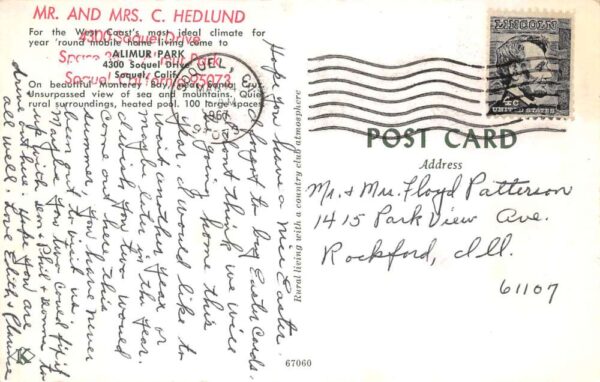 MR. AND MRS. C. HEDLUND
4300 Soquel Drive
Soquel, California 95073
For the West Coast's most ideal climate for
year 'round mobile home living come to
ALIMUR PARK
4300 Soquel Drive
Soquel, Calif.
On beautiful Monterey Bay, near Santa Cruz.
Unsurpassed view of sea and mountains. Quiet
rural surroundings, heated pool. 100 large spaces.
SOQUEL, CA
1967
LINCOLN
4c
UNITED STATES
POST CARD
Address
Mr. & Mrs. Floyd Patterson
1415 Park View Ave.
Rockford, Ill.
61107
Hope you have a nice Easter.
I forgot to buy Easter Cards.
Don't think we will
be going home this
year. I would like to
wait another year or
maybe later in the year.
I wish you two would
come out here this
summer, you have never
been out to visit us.
Maybe you two could fix it
up with Jean, Phil & Donna to
drive out here. Hope you are
all well. Love Edith & Clarence
Rural living with a country club atmosphere
K
67060